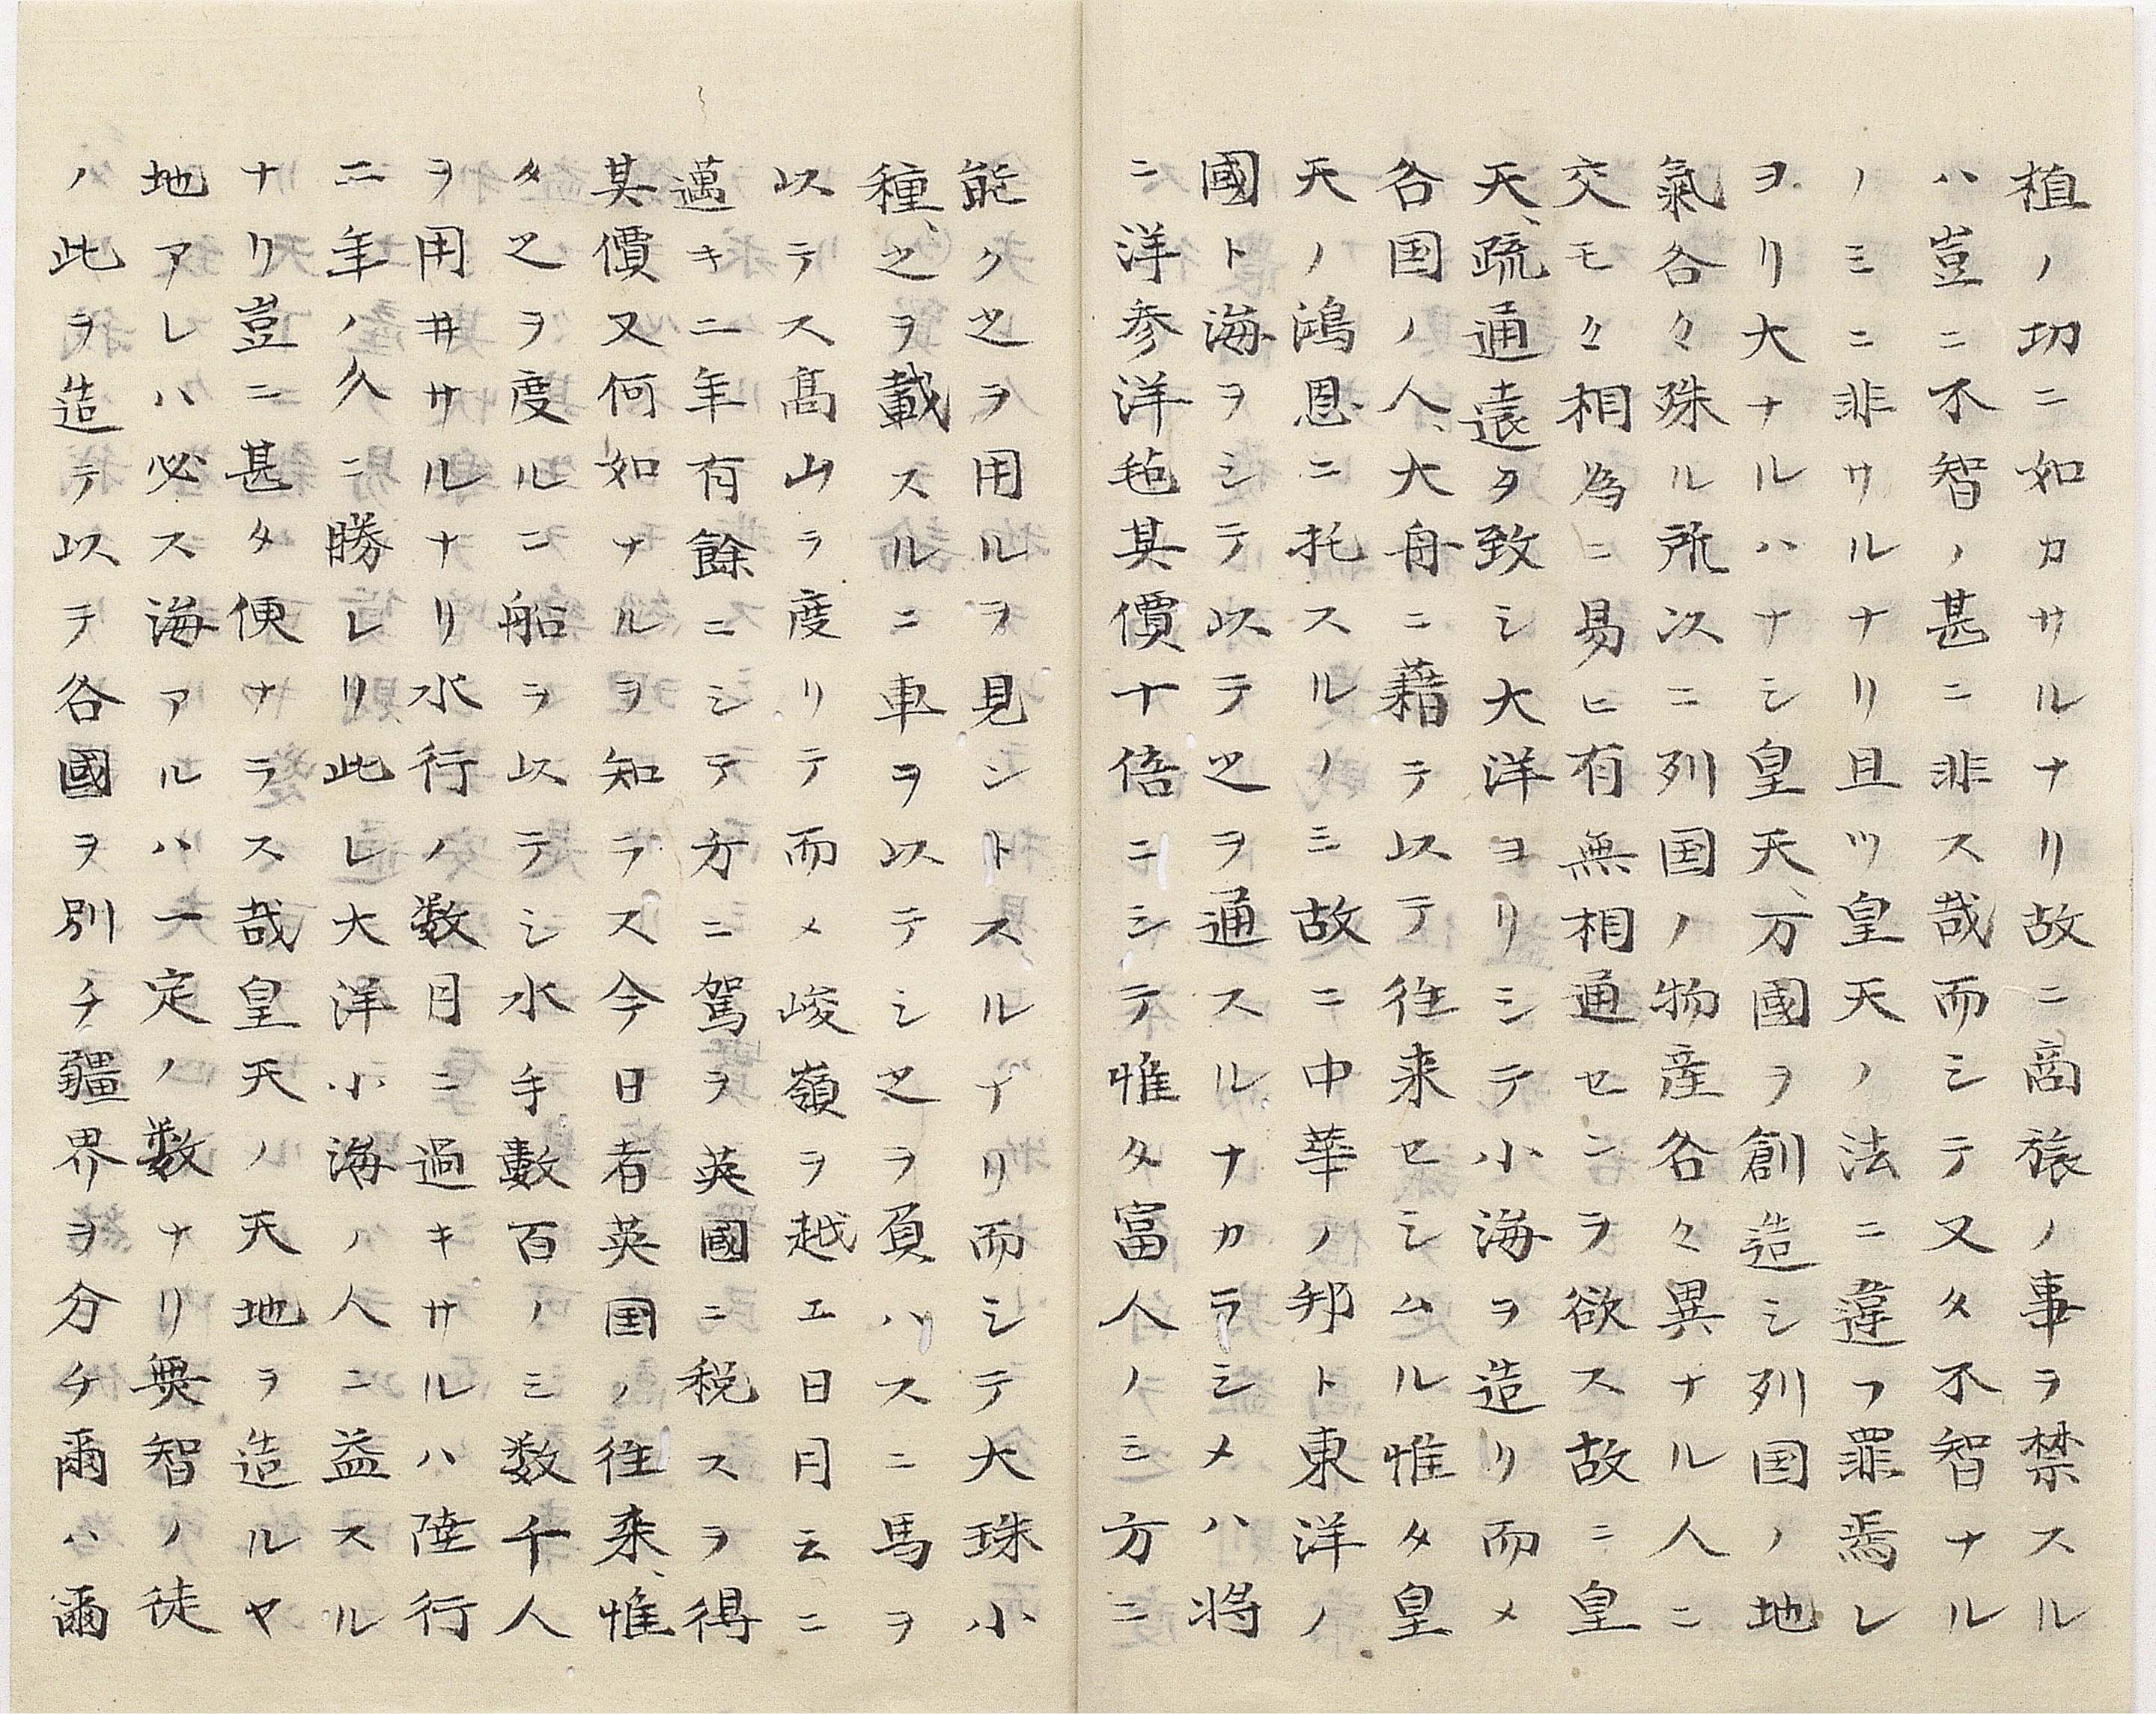 植ノ功ニ如カサルナリ故ニ商旅ノ事ヲ禁スル
ハ豈ニ不智ノ甚ニ非ス哉而シテ又タ不智ナル
ノミニ非サルナリ且ツ皇天ノ法ニ違フ罪焉レ
ヨリ大ナルハナシ皇天、万國ヲ創造シ列国ノ地
氣各々殊ル所以ニ列国ノ物産各々異ナル人ニ
交モ々相為ニ易ヒ有無相通センヲ欲ス故ニ皇
天、疏通遠ク致シ大洋ヨリシテ小海ヲ造リ而メ
各国ノ人、大舟ニ藉テ以テ往来セシムル惟タ皇
天ノ鴻恩ニ托スルノミ故ニ中華ノ邦ト東洋ノ
國ト海ヲシテ以テ之ヲ通スルナカラシメハ将
ニ洋参洋毡其價十倍ニシテ惟タ富人ノミ方ニ
能ク之ヲ用ルヲ見ントスルイリ而シテ大珠小
種、之ヲ載スルニ車ヲ以テシ之ヲ負ハスニ馬ヲ
以テス髙山ヲ度リテ而メ峻嶺ヲ越エ日月云ニ
邁キ二年有餘ニシテ方ニ駕ヲ英國ニ税スヲ得
其價又何如ナルヲ知ラス今日者英国ノ往来、惟
タ之ヲ度ルニ船ヲ以テシ水手數百ノミ数千人
ヲ用井サルナリ水行ノ数月ニ過キサルハ陸行
二年ノ久ニ勝レリ此レ大洋小海ノ人ニ益スル
ナリ豈ニ甚タ便ナラス哉皇天ノ天地ヲ造ルヤ
地アレハ必ス海アルハ一定ノ数ナリ無智ノ徒
ノ此ヲ造テ以テ各國ヲ別チ疆界ヲ分チ爾ハ爾